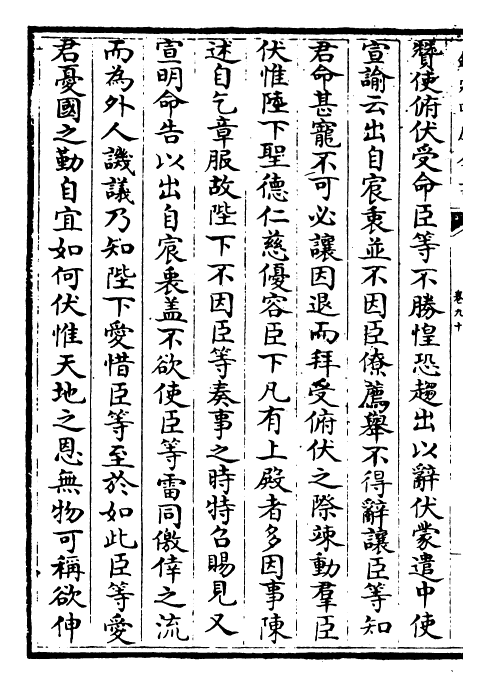 贊使俯伏受命臣等不勝惶恐趨出以辭伏蒙遣中使
宣諭云出自宸衷並不因臣僚薦舉不得辭讓臣等知
君命甚寵不可必讓因退而拜受俯伏之際竦動羣臣
伏惟陛下聖德仁慈優容臣下凡有上殿者多因事陳
述自乞章服故陛下不因臣等奏事之時特召賜見又
宣明命告以出自宸衷盖不欲使臣等雷同儌倖之流
而為外人譏議乃知陛下愛惜臣等至於如此臣等愛
君憂國之勤自宜如何伏惟天地之恩無物可稱欲伸
卷九十